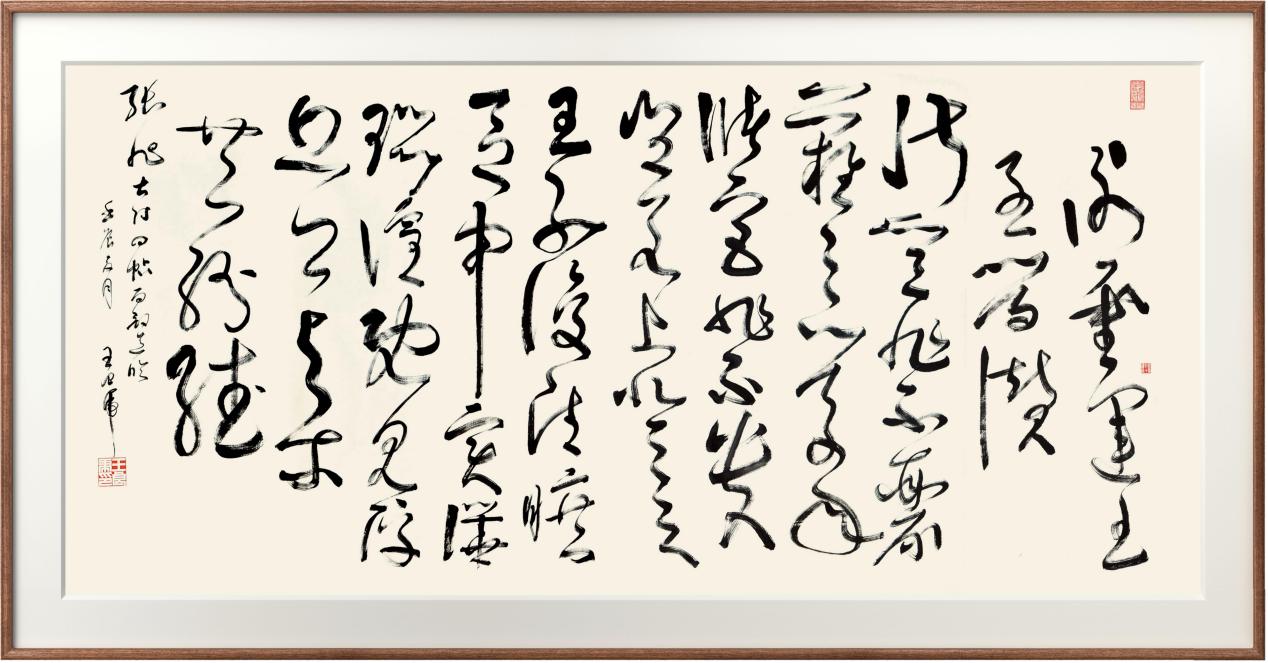 谢灵运王
子晋赞
淑质非不丽
难之以万年
储宫非不贵
岂若上登天
王子复清旷
区中实哗
嚣喧既见浮
丘公与尔
共纷繙
张旭古诗四帖
壬辰 月
王